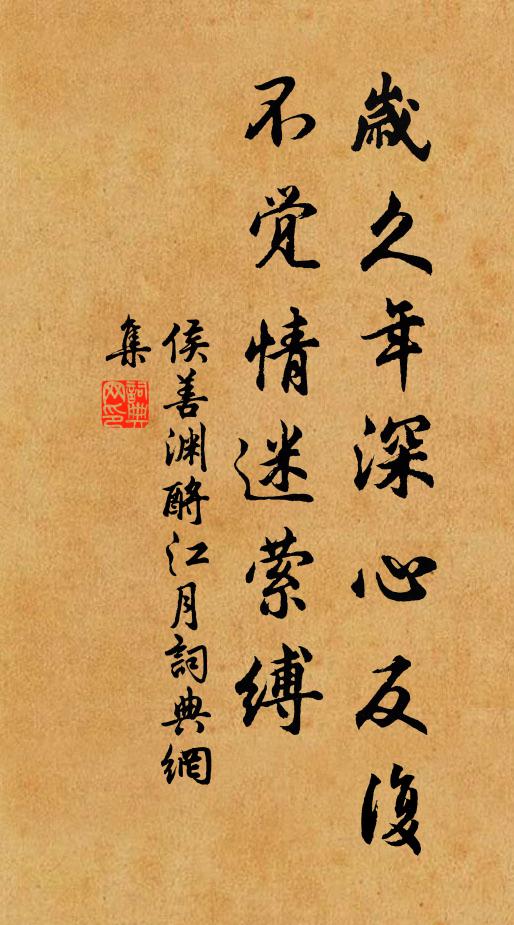 歲久年深心反復
不觉情迷萦缚
侯善渊酹江月詞典網
集
詞典網印